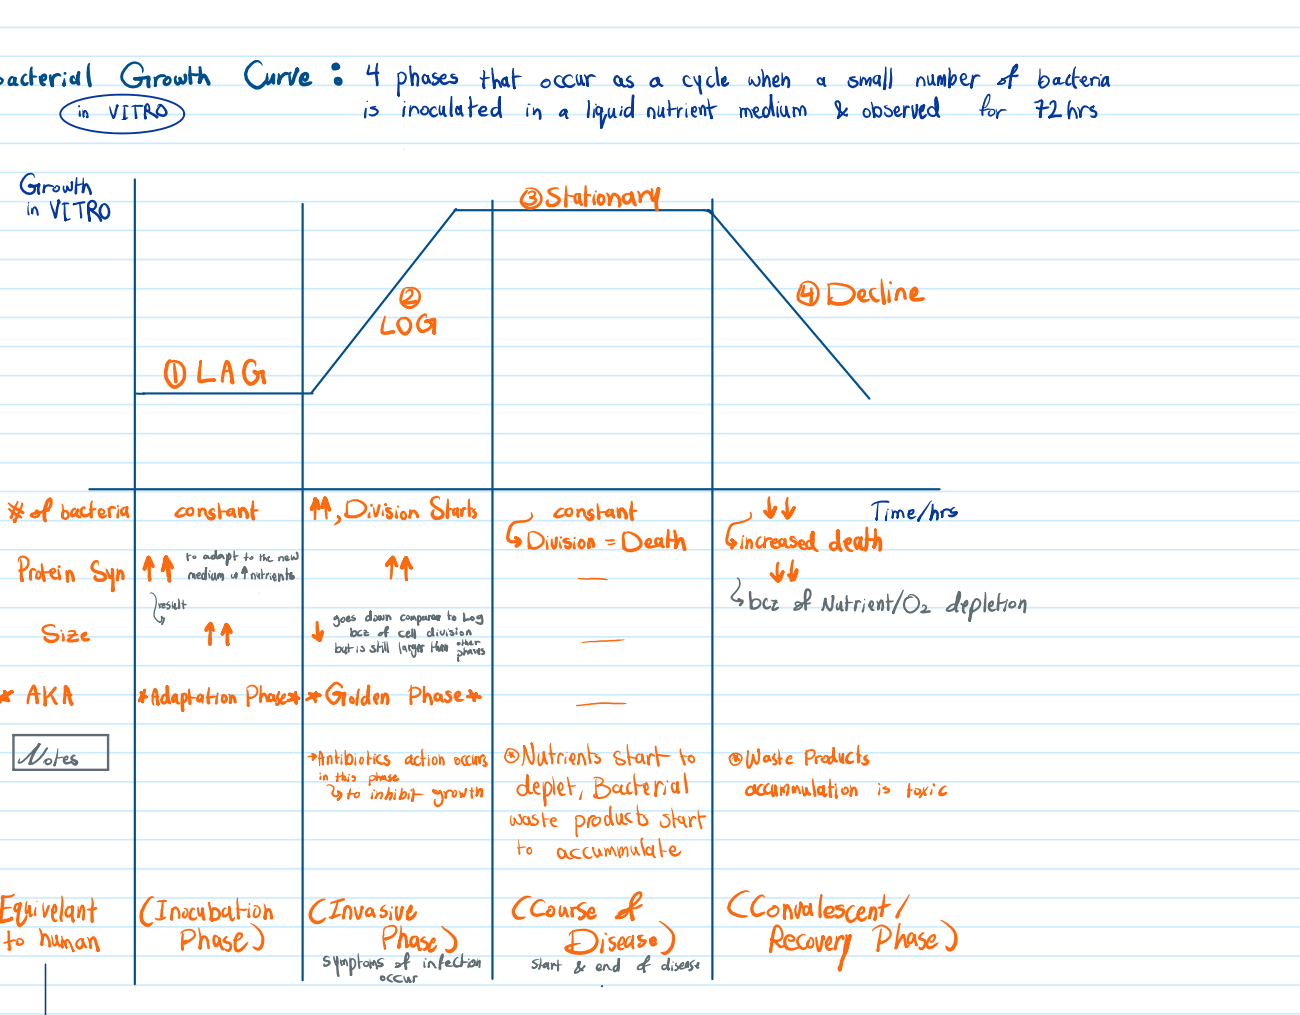 bacterial Growth Curve : 4 phases that occur as a cycle when a small number of bacteria
in VITRO
is inoculated in a liquid nutrient medium & observed for 72 hrs
Growth
in VITRO
③ Stationary
② LOG
④ Decline
① LAG
# of bacteria
constant
↑↑, Division Starts
constant
↳ Division = Death
↓↓
↳ increased death
Time/hrs
Protein Syn
↑↑ to adapt to the new
medium w ↑ nutrients
↑↑
—
↓↓
↳ bcz of Nutrient/O2 depletion
result
Size
↑↑
↓ goes down compared to Log
bcz of cell division
but is still larger than other
phases
—
* AKA
*Adaptation Phase*
*Golden Phase*
—
Notes
→Antibiotics action occurs
in this phase
↳ to inhibit growth
* Nutrients start to
deplet, Bacterial
waste products start
to accummulate
* Waste Products
accummulation is toxic
Equivelant
to human
(Inocubation
Phase)
(Invasive
Phase)
symptoms of infection
occur
(Course of
Disease)
start & end of disease
(Convalescent/
Recovery Phase)